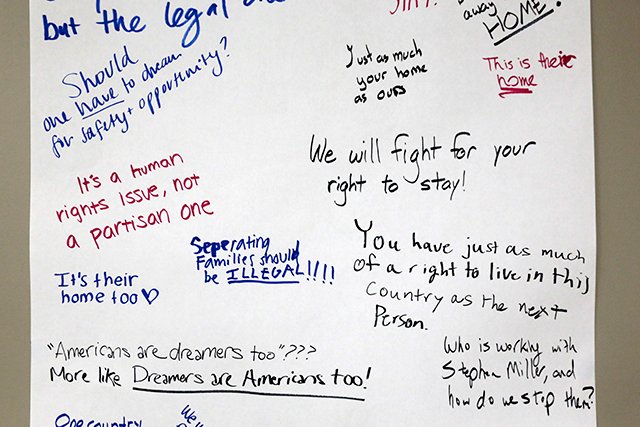 but the legal
away
HOME!
Should
one have to dream
for safety + opportunity?
Just as much
your home
as ours
This is their
home
We will fight for your
right to stay!
It's a human
rights issue, not
a partisan one
Seperating
Families should
be ILLEGAL!!!!
You have just as much
of a right to live in this
Country as the next
Person.
It's their
home too♡
"Americans are dreamers too"???
More like Dreamers are Americans too!
Who is working with
Stephen Miller, and
how do we stop them?
One country